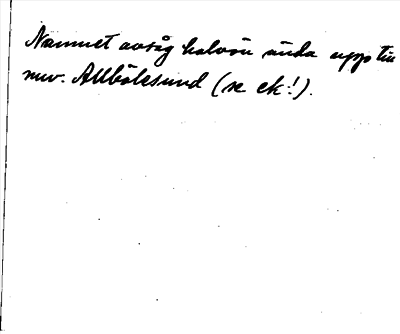 Namnet avsåg halvön ända upp till
nuv. Allbölesund (se ek!).